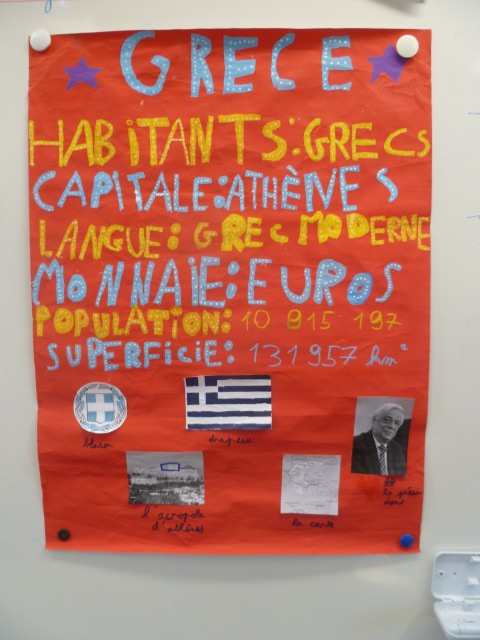 GRECE
HABITANTS: GRECS
CAPITALE: ATHÈNES
LANGUE: GREC MODERNE
MONNAIE: EUROS
POPULATION: 10 815 197
SUPERFICIE: 131 957 km²
blason
drapeau
le prési
dent
l'acropole
d'athènes
la carte